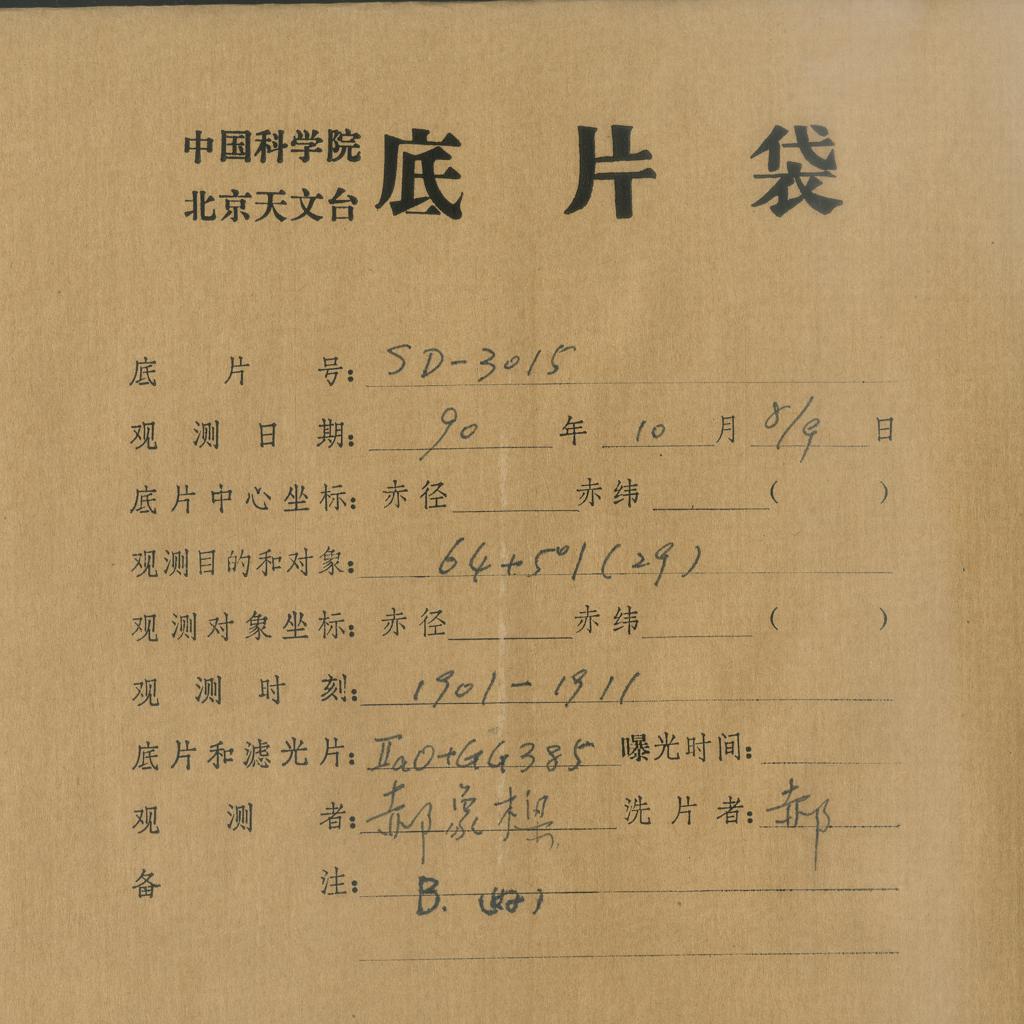 中国科学院
北京天文台
底片袋
底片号: SD-3015
观测日期: 90 年 10 月 8/9 日
底片中心坐标: 赤径 赤纬 ( )
观测目的和对象: 64+5°1(29)
观测对象坐标: 赤径 赤纬 ( )
观测时刻: 1901-1911
底片和滤光片: IIaO+GG385 曝光时间:
观测者: 郝象樑 洗片者: 郝
备注: B. (好)